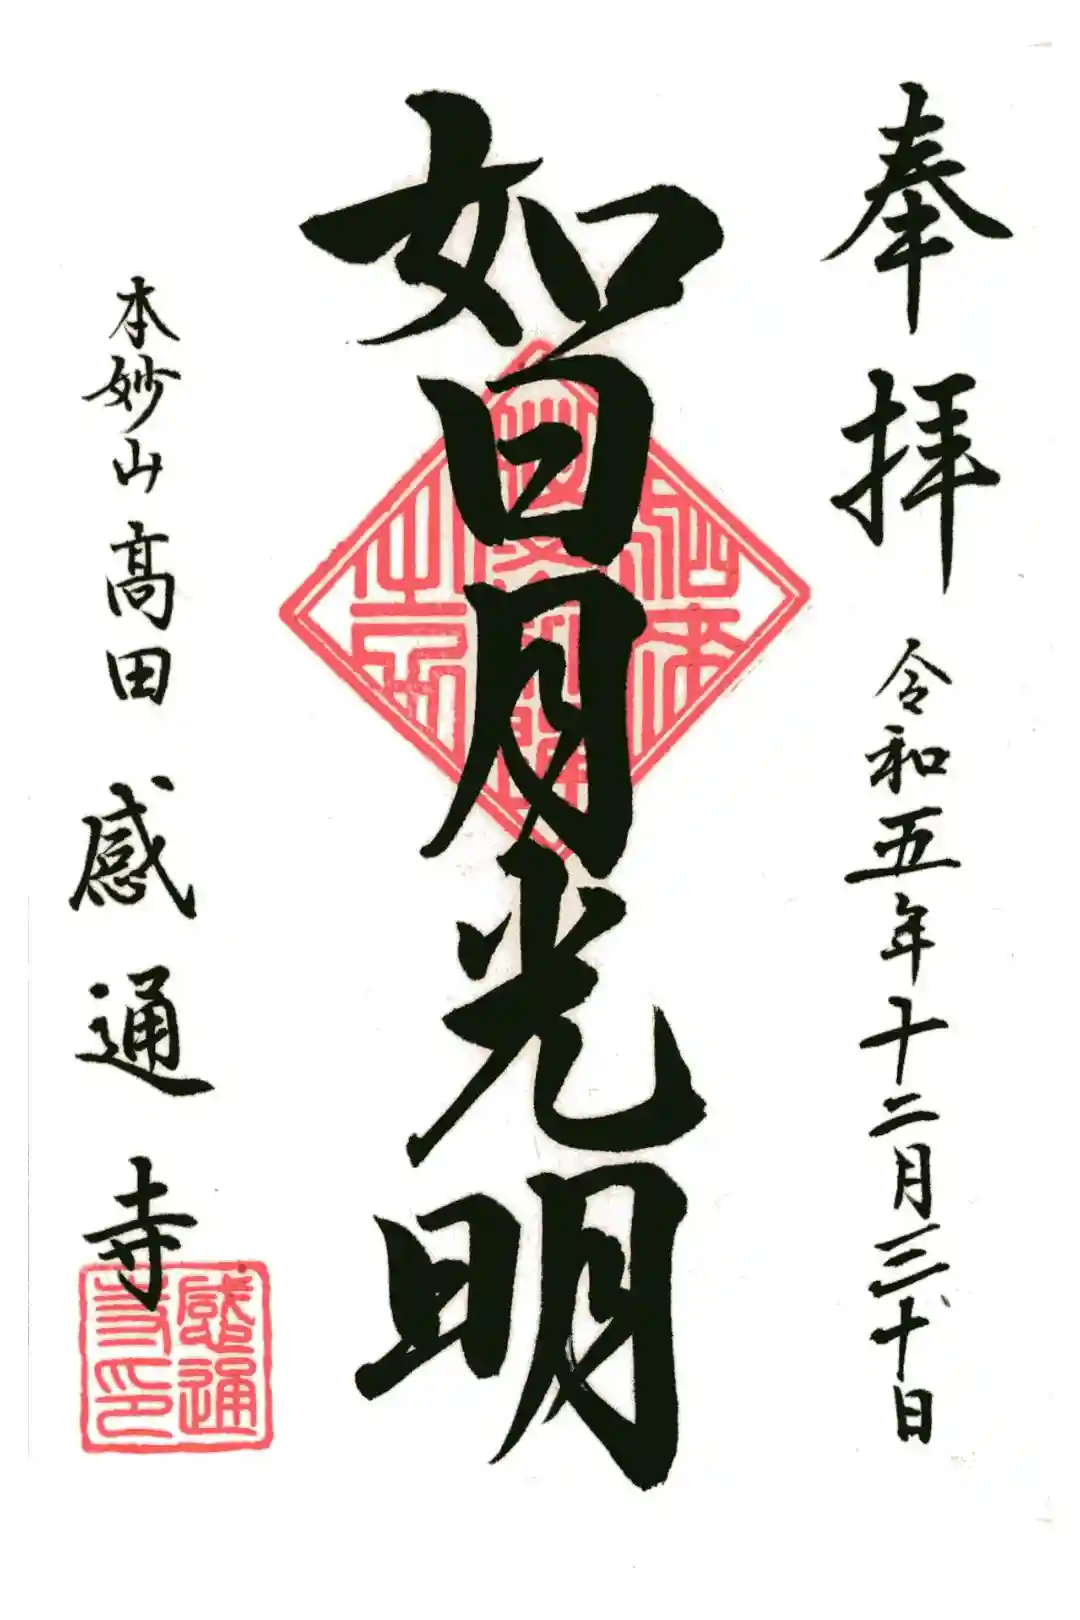 奉拝 令和五年十二月三十日
如日月光明
本妙山高田 感通寺
感通
寺印